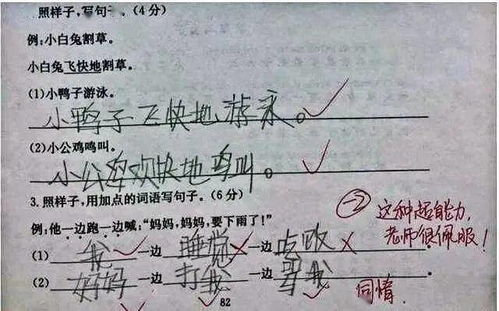 照样子,写句子。(4分)
例:小白兔割草。
小白兔飞快地割草。
(1)小鸭子游泳。
小鸭子飞快地游泳。
(2)小公鸡鸣叫。
小公鸡欢快地鸣叫。
3.照样子,用加点的词语写句子。(6分)
例:他一边跑一边喊:“妈妈,妈妈,要下雨了!”
(1) 我 一边 睡觉 一边 吃饭 。
(2) 妈妈 一边 打我 一边 骂我 。
-2 这种超能力,
老师很佩服!
同情.
82